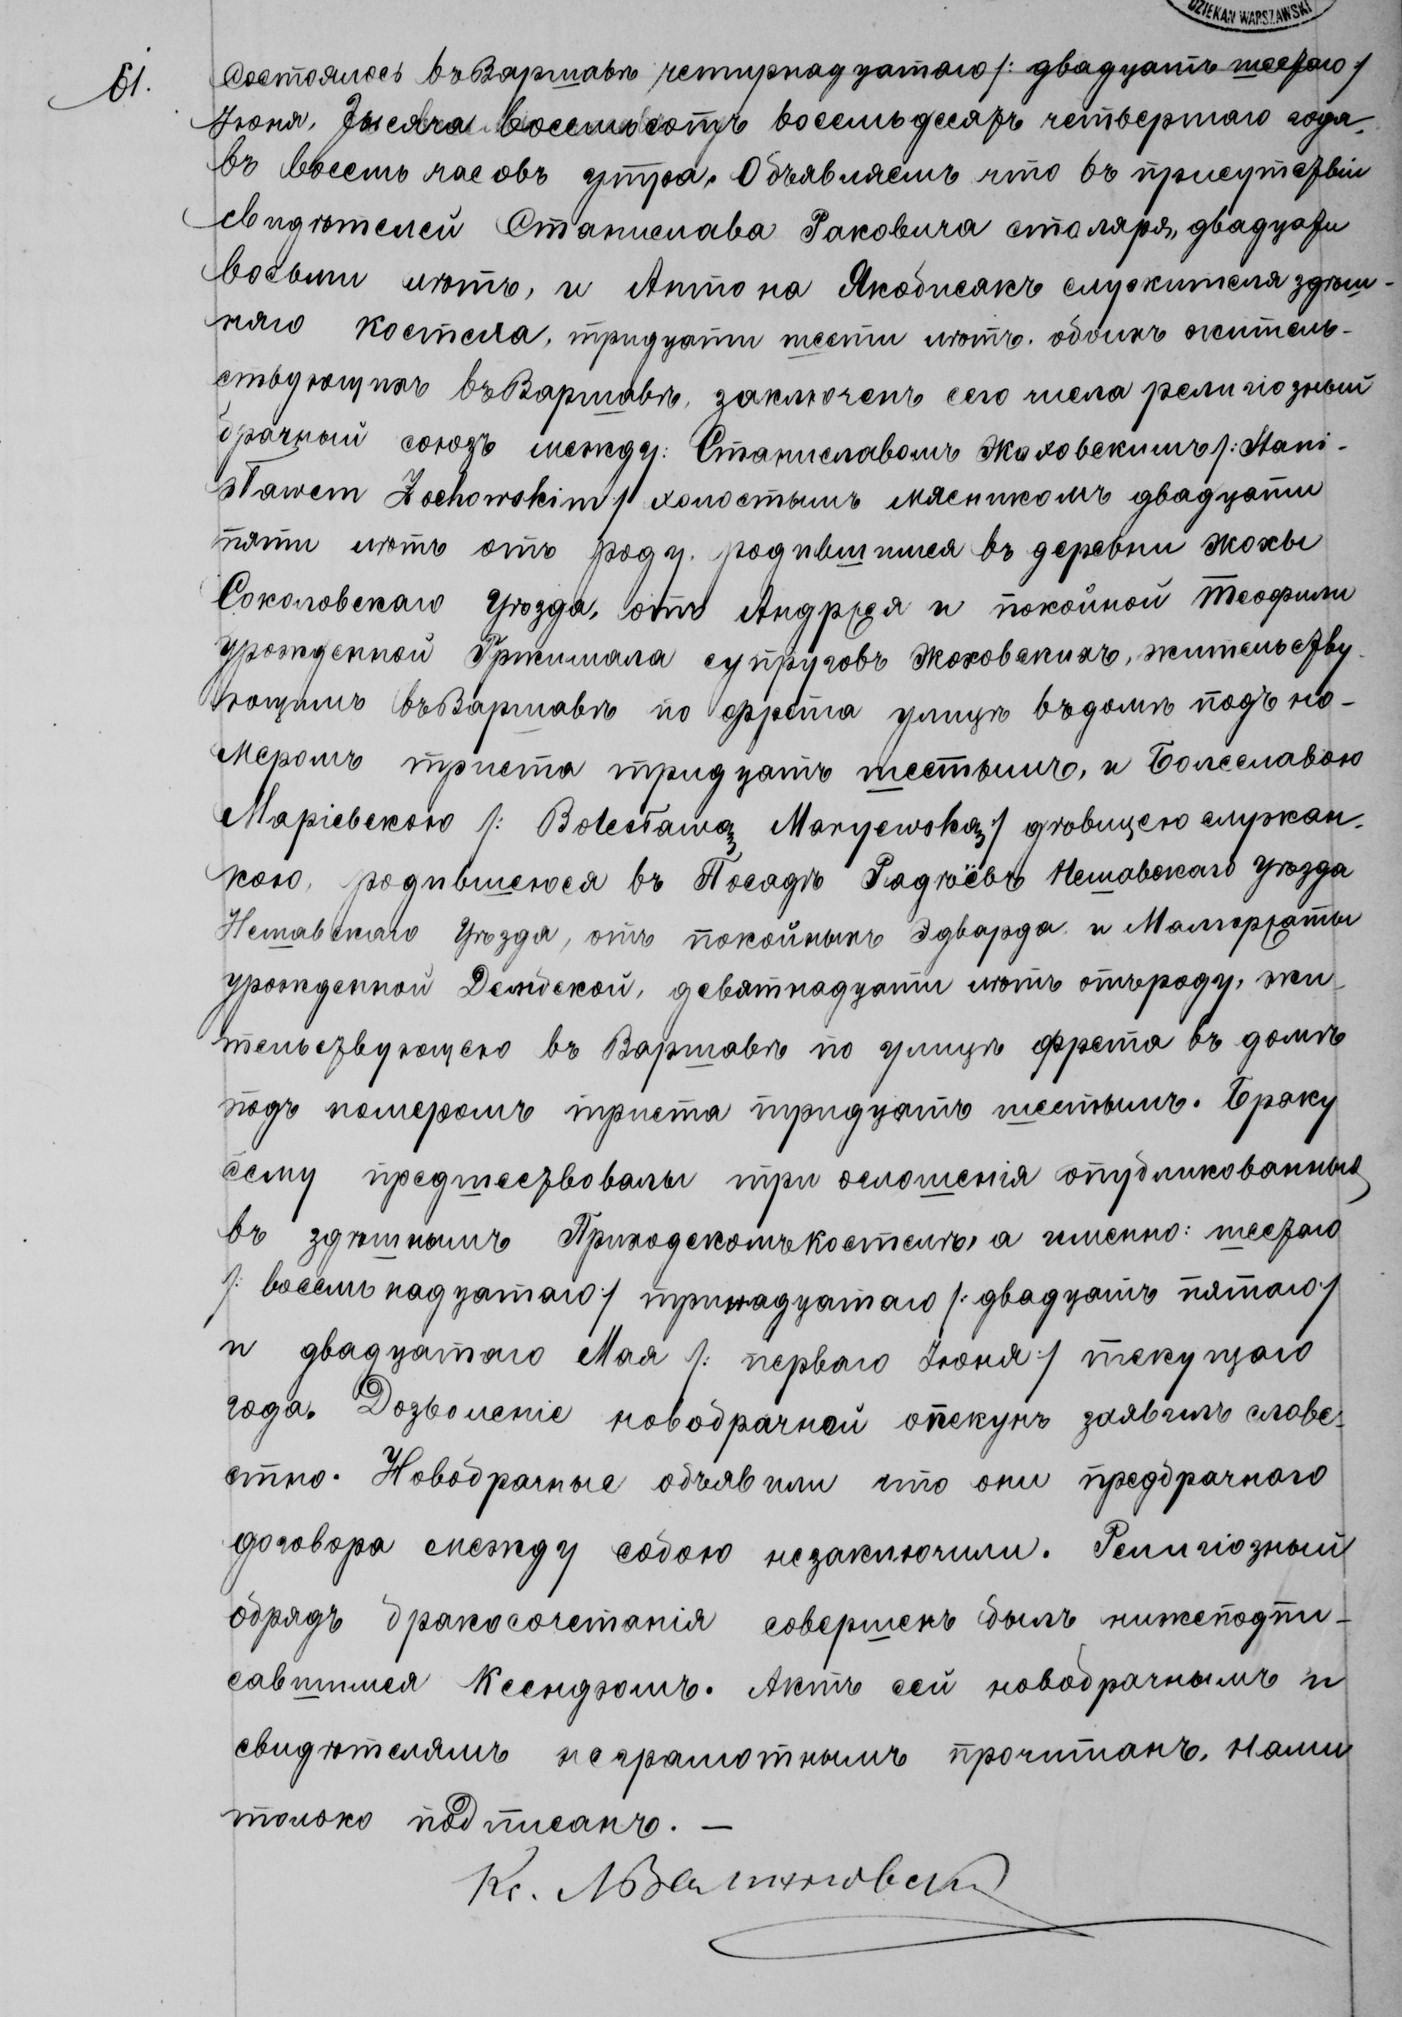 DZIEKAN WARSZAWSKI
61.
Состоялось въ Варшавѣ четырнадцатаго /: двадцать шестаго /
Іюня, Тысяча восемьсотъ восемьдесятъ четвертаго года,
въ восемь часовъ утра. Объявляемъ что въ присутствіи
свидѣтелей Станислава Раковича столяра, двадцати
восьми лѣтъ, и Антона Якобисякъ служителя здѣш-
няго костела, тридцати шести лѣтъ. обоихъ житель-
ствующихъ въ Варшавѣ, заключенъ сего числа религіозный
брачный союзъ между: Станиславомъ Жоховскимъ /: Stani-
sławem Żochowskim / холостымъ мясникомъ двадцати
пяти лѣтъ отъ роду, родившимся въ деревни Жохы
Соколовскаго Уѣзда, отъ Андрея и покойной Теофили
урожденной Гржимала супруговъ Жоховскихъ, жительству-
ющимъ въ Варшавѣ по Фрета улицѣ въ домѣ подъ но-
меромъ триста тридцать шестымъ, и Болеславою
Маріевскою /: Bolesławą Maryewską :/ дѣвицею служан-
кою, родившеюся въ Посадѣ Радѣёвъ Нешавскаго Уѣзда
Нешавскаго Уѣзда, отъ покойныхъ Эдварда и Малгоржаты
урожденной Дембской, девятнадцати лѣтъ отъ роду, жи-
тельствующею въ Варшавѣ по улицѣ Фрета въ домѣ
подъ номеромъ триста тридцать шестымъ. Браку
сему предшествовалы три оглошенія опубликованныя
въ здѣшнымъ Приходскомъ костелѣ, а именно: шестаго
/: восемнадцатаго :/ тринадцатаго /: двадцать пятаго :/
и двадцатаго Мая /: перваго Іюня :/ текущаго
года. Дозволеніе новобрачной опекунъ заявилъ слове-
стно. Новобрачные объявили что они предбрачнаго
договора между собою незаключили. Религіозный
обрядъ бракосочетанія совершенъ былъ нижеподпи-
савшимся Ксендзомъ. Актъ сей новобрачнымъ и
свидѣтелямъ неграмотнымъ прочитанъ, нами
только подписанъ. —
Кс.